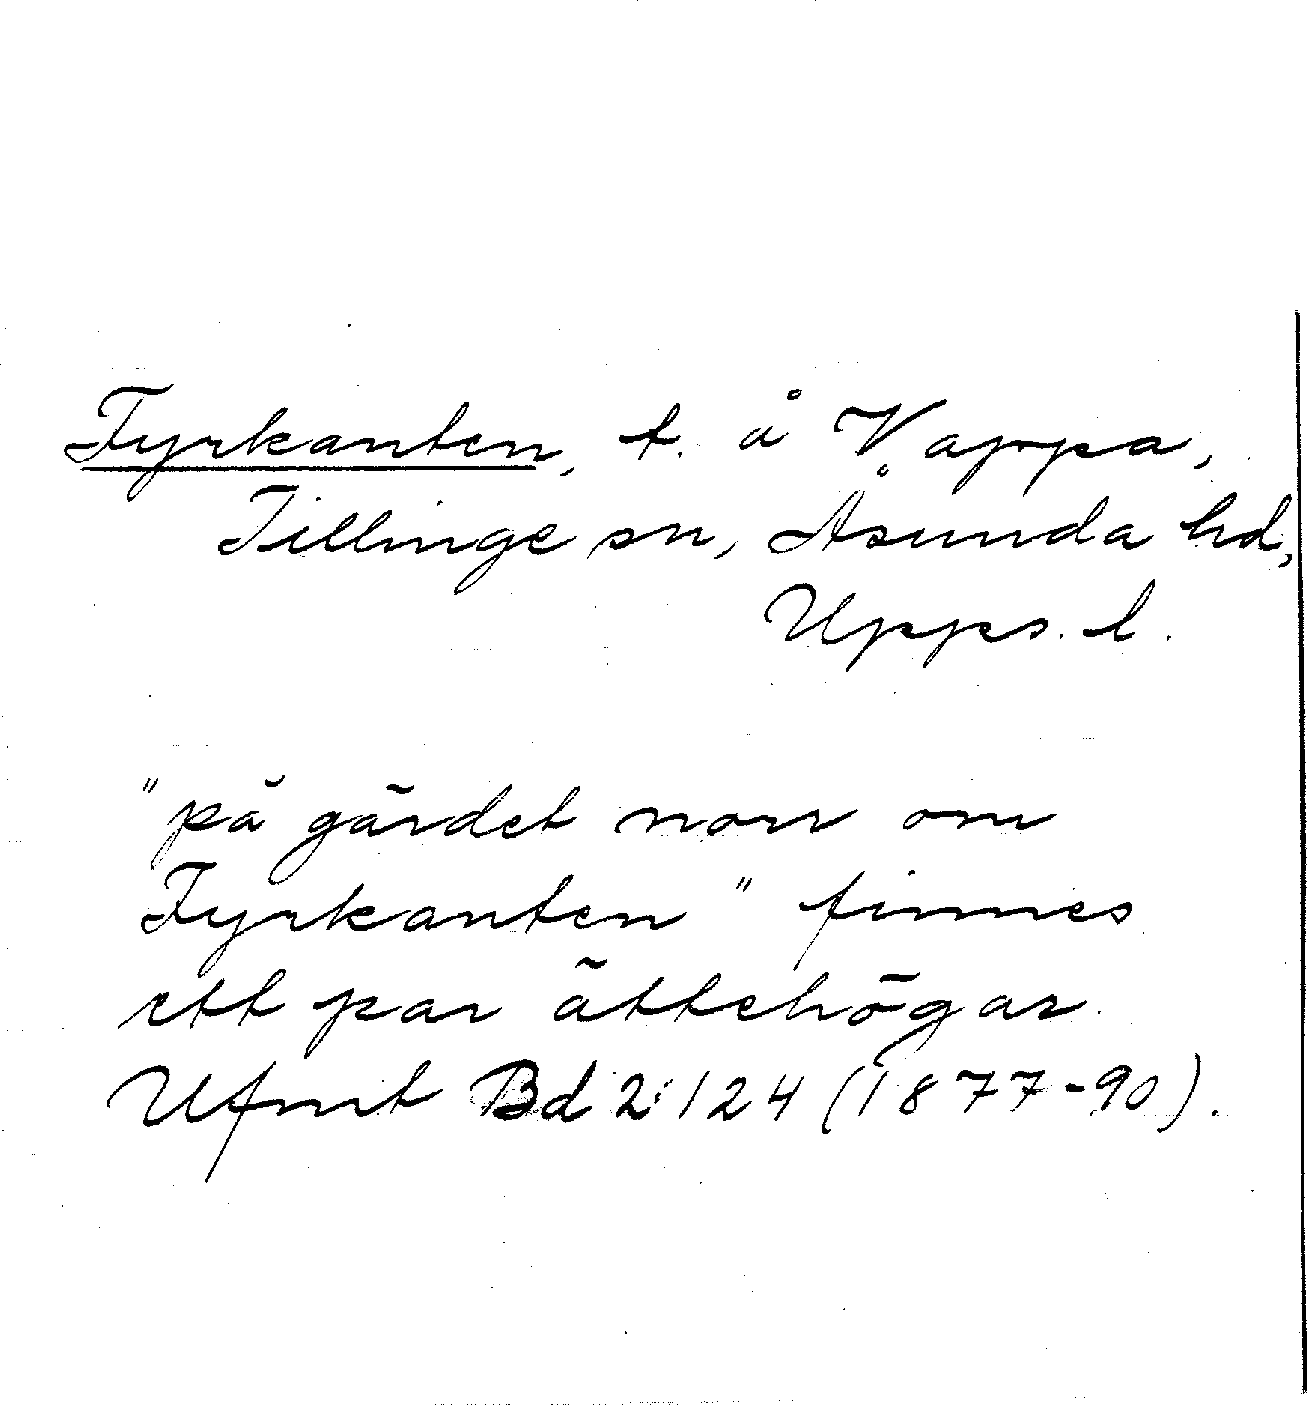 Fyrkanten, t. å Vappa,
Tillinge sn, Åsunda hd,
Upps. l.
"på gärdet norr om
Fyrkanten" finnes
ett par ättehögar.
Ufmt Bd 2:124 (1877-90).